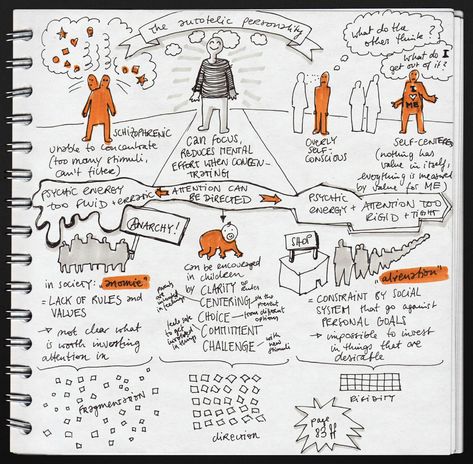 The autotelic personality
What do the
others think?
What do I
get out of it?
I
♥
ME
SCHIZOPHRENIC
unable to concentrate
(too many stimuli,
can't filter)
CAN FOCUS,
REDUCES MENTAL
EFFORT WHEN CONCEN-
TRATING
OVERLY
SELF-
CONSCIOUS
SELF-CENTERED
(nothing has
value in itself,
everything is measured
by value for ME)
PSYCHIC ENERGY
TOO FLUID + ERRATIC
ATTENTION CAN
BE DIRECTED
PSYCHIC
ENERGY +
ATTENTION TOO
RIGID + TIGHT
ANARCHY!
SHOP
in society: "anomie"
= LACK OF RULES AND
VALUES
→ not clear what
is worth investing
attention in
can be encouraged
in children
by CLARITY
CENTERING in the present
CHOICE from different options
COMMITMENT
CHALLENGE with new stimuli
feels safe
to get
involved
in things
"alienation"
= CONSTRAINT BY SOCIAL
SYSTEM that go against
PERSONAL GOALS
→ impossible to invest
in things that are
desirable
FRAGMENTATION
direction
RIGIDITY
page
83 ff